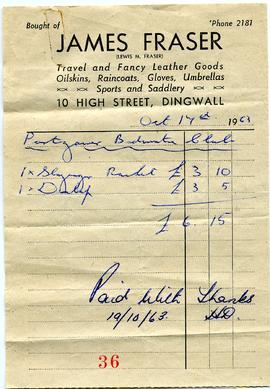 Bought of 'Phone 2181
JAMES FRASER
(LEWIS N. FRASER)
Travel and Fancy Leather Goods
Oilskins, Raincoats, Gloves, Umbrellas
Sports and Saddlery
10 HIGH STREET, DINGWALL
Oct 14th 1963
Badminton Club
1x Slazenger Racket £ 3 10
1x Dunlop £ 3 5
£ 6. 15
Paid With Thanks
19/10/63.
36